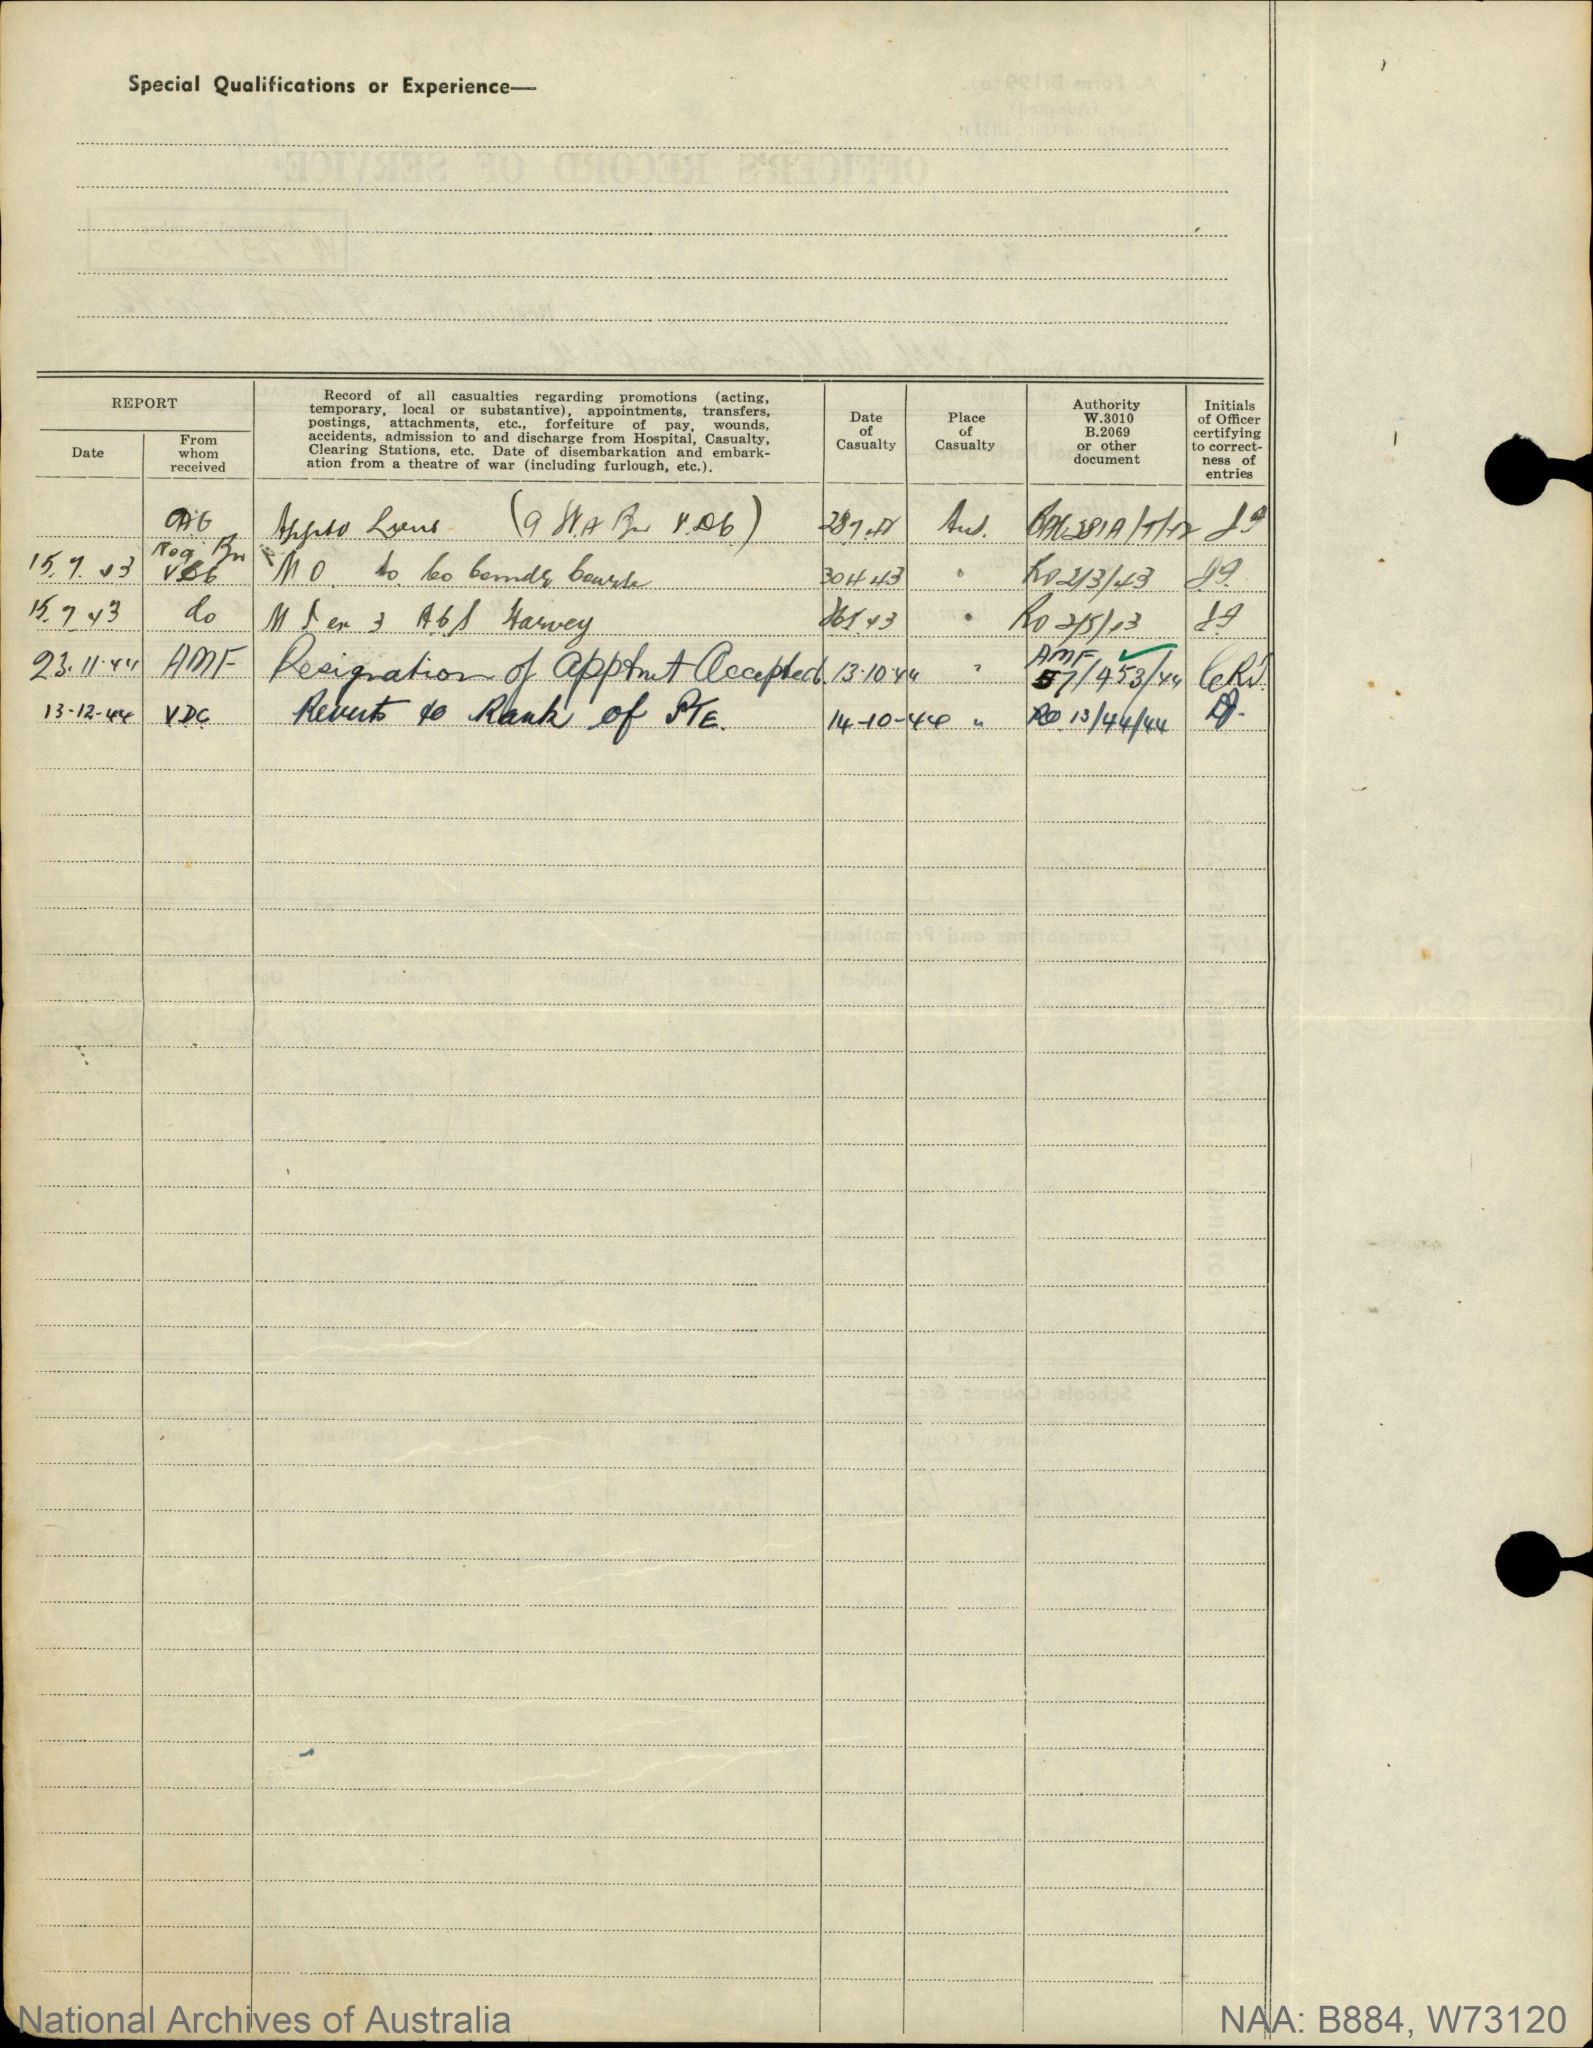 Special Qualifications or Experience—
REPORT
Date
From
whom
received
Record of all casualties regarding promotions (acting,
temporary, local or substantive), appointments, transfers,
postings, attachments, etc., forfeiture of pay, wounds,
accidents, admission to and discharge from Hospital, Casualty,
Clearing Stations, etc. Date of disembarkation and embark-
ation from a theatre of war (including furlough, etc.).
Date
of
Casualty
Place
of
Casualty
Authority
W.3010
B.2069
or other
document
Initials
of Officer
certifying
to correct-
ness of
entries
Lieut (9 W.A Bn V.D.C)
15.7.43 M O to Co Comdr Course 30 4 43 " RO 2/3/43
15.7.43 do Harvey " RO 2/5/43
AMF
23.11.44 AMF Resignation of Apptmt Accepted. 13.10.44 " 57/453/44
13-12-44 VDC Reverts to Rank of PTE. 14-10-44 " RO 13/44/44
National Archives of Australia
NAA: B884, W73120